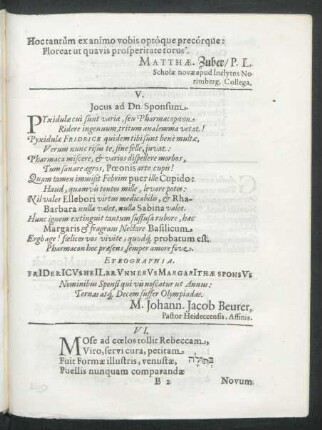 Hoc tantûm ex animo vobis optóque precórque:
Floreat ut quavis prosperitate torus.
MATTHÆ. Zuber / P. L.
Scholæ novæ apud Inclytos No-
rimberg. Collega.
V.
Jocus ad Dn. Sponsum.
PYxidulæ cui sunt variæ, seu Pharmacopœum
Ridere ingenuum, tritum analemma vetat!
Pyxidulæ FRIDRICE quidem tibi sunt benè multæ,
Verum nunc risu te, sine felle, juvat:
Pharmaca miscere, & varios dispellere morbos,
Tum sanare agros, Pæonis arte cupis!
Quam tamen immisit Febrim puer ille Cupido:
Haud, quam vis tentes mille, levare potes:
Nil valet Ellebori virtus medicabilis, & Rha-
Barbara nulla valet, nulla Sabina valet.
Hunc ignem extinguit tantum suffusa rubore, hæc
Margaris & fragrans Nectare Basilicum.
Ergo age! fœlices vos vivite, quodq́; probatum est.
Pharmacon hoc præsens semper amore fova.
ETEOGRAPHIA.
FRIDERICVS HEILBRVNNERVS MARGARITHÆ SPONSVS
Nominibus Sponsi qui vir noscatur ut Annus:
Ternas atq́; Decem suffer Olympiadas.
M. Johann. Jacob Beurer,
Pastor Heidecensis. Affinis.
VI.
MOse ad cœlos tollit Rebeccam,
Viro, servi cura, petitam
Fuit Formæ illustris, venustæ, בתולה
Puellis nunquam comparandæ
B 2 Novum.